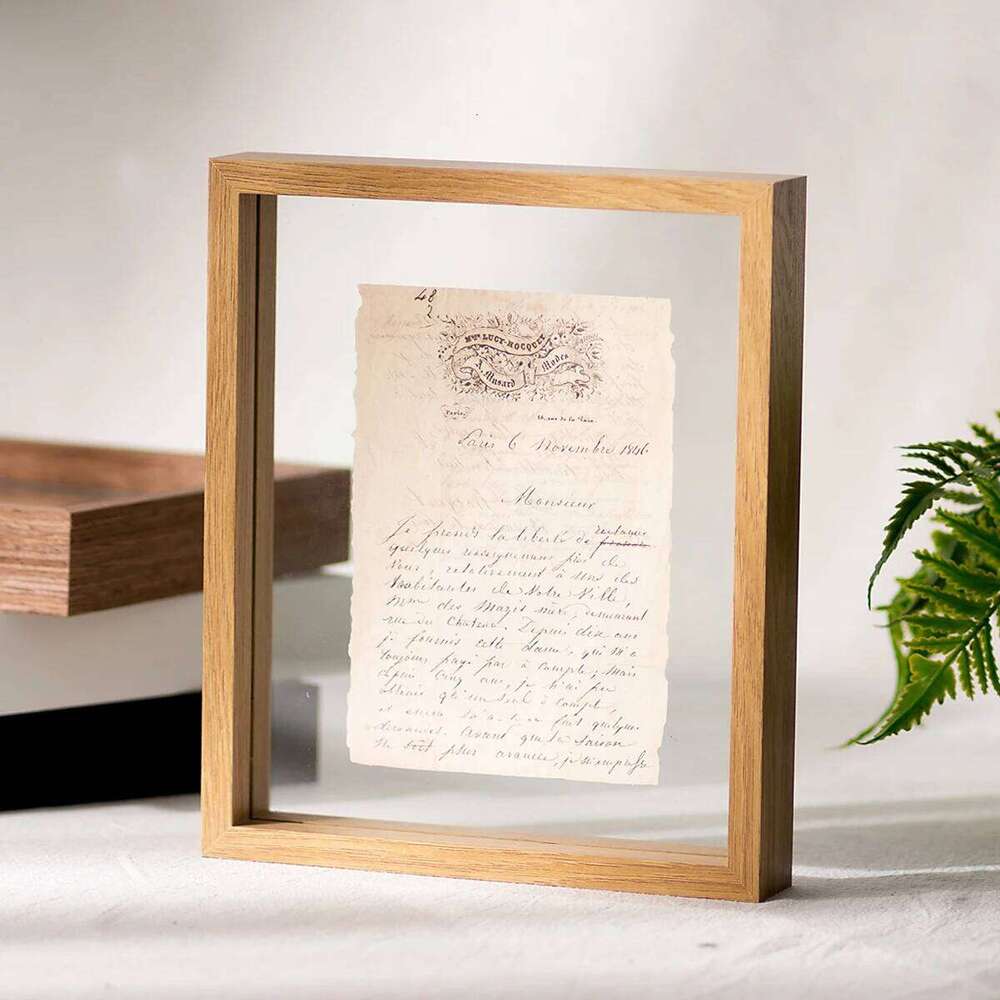 48
2.
Mme LUCY-HOCQUET
A. Musard Modes
Paris,
rue de la Paix.
Paris 6 Novembre 184
Monsieur
Je prends la liberté de
quelques renseignemens près de
Vous, relativement à une des
habitantes de Notre Ville,
Mme des Mazis mère, demeurant
rue du Chateau. Depuis dix ans
je fournis cette Dame, qui m'a
toujours payé par à compte, Mais
depuis Cinq ans, je n'ai pu
obtenir qu'un seul à Compte,
et encore m'a-t-on fait quelque
avant que la saison
ne soit plus avancée, je m'empresse